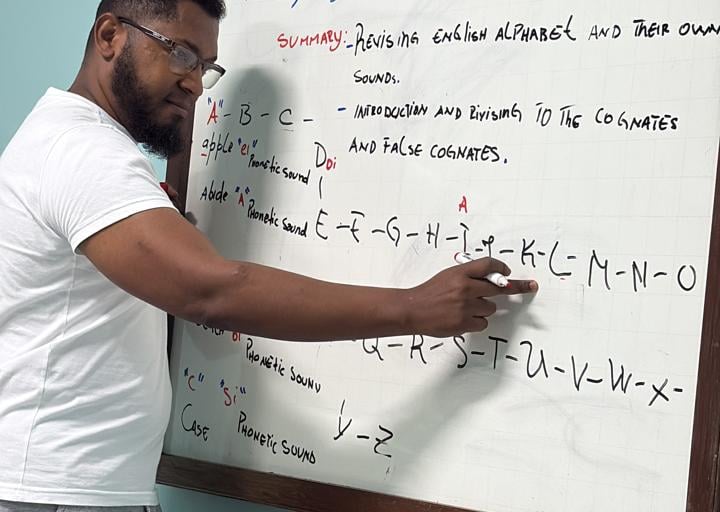 SUMMARY: - REVISING ENGLISH ALPHABET AND THEIR OWN
SOUNDS.
- INTRODUCTION AND RIVISING TO THE COGNATES
AND FALSE COGNATES.
"A" - B - C -
apple "ei" PHONETIC SOUND
D Di
Abide "A" PHONETIC SOUND
A
E - F - G - H - I - J - K - L - M - N - O
Bi PHONETIC SOUND
Q - R - S - T - U - V - W - X -
"C" "Si"
CASE PHONETIC SOUND
Y - Z